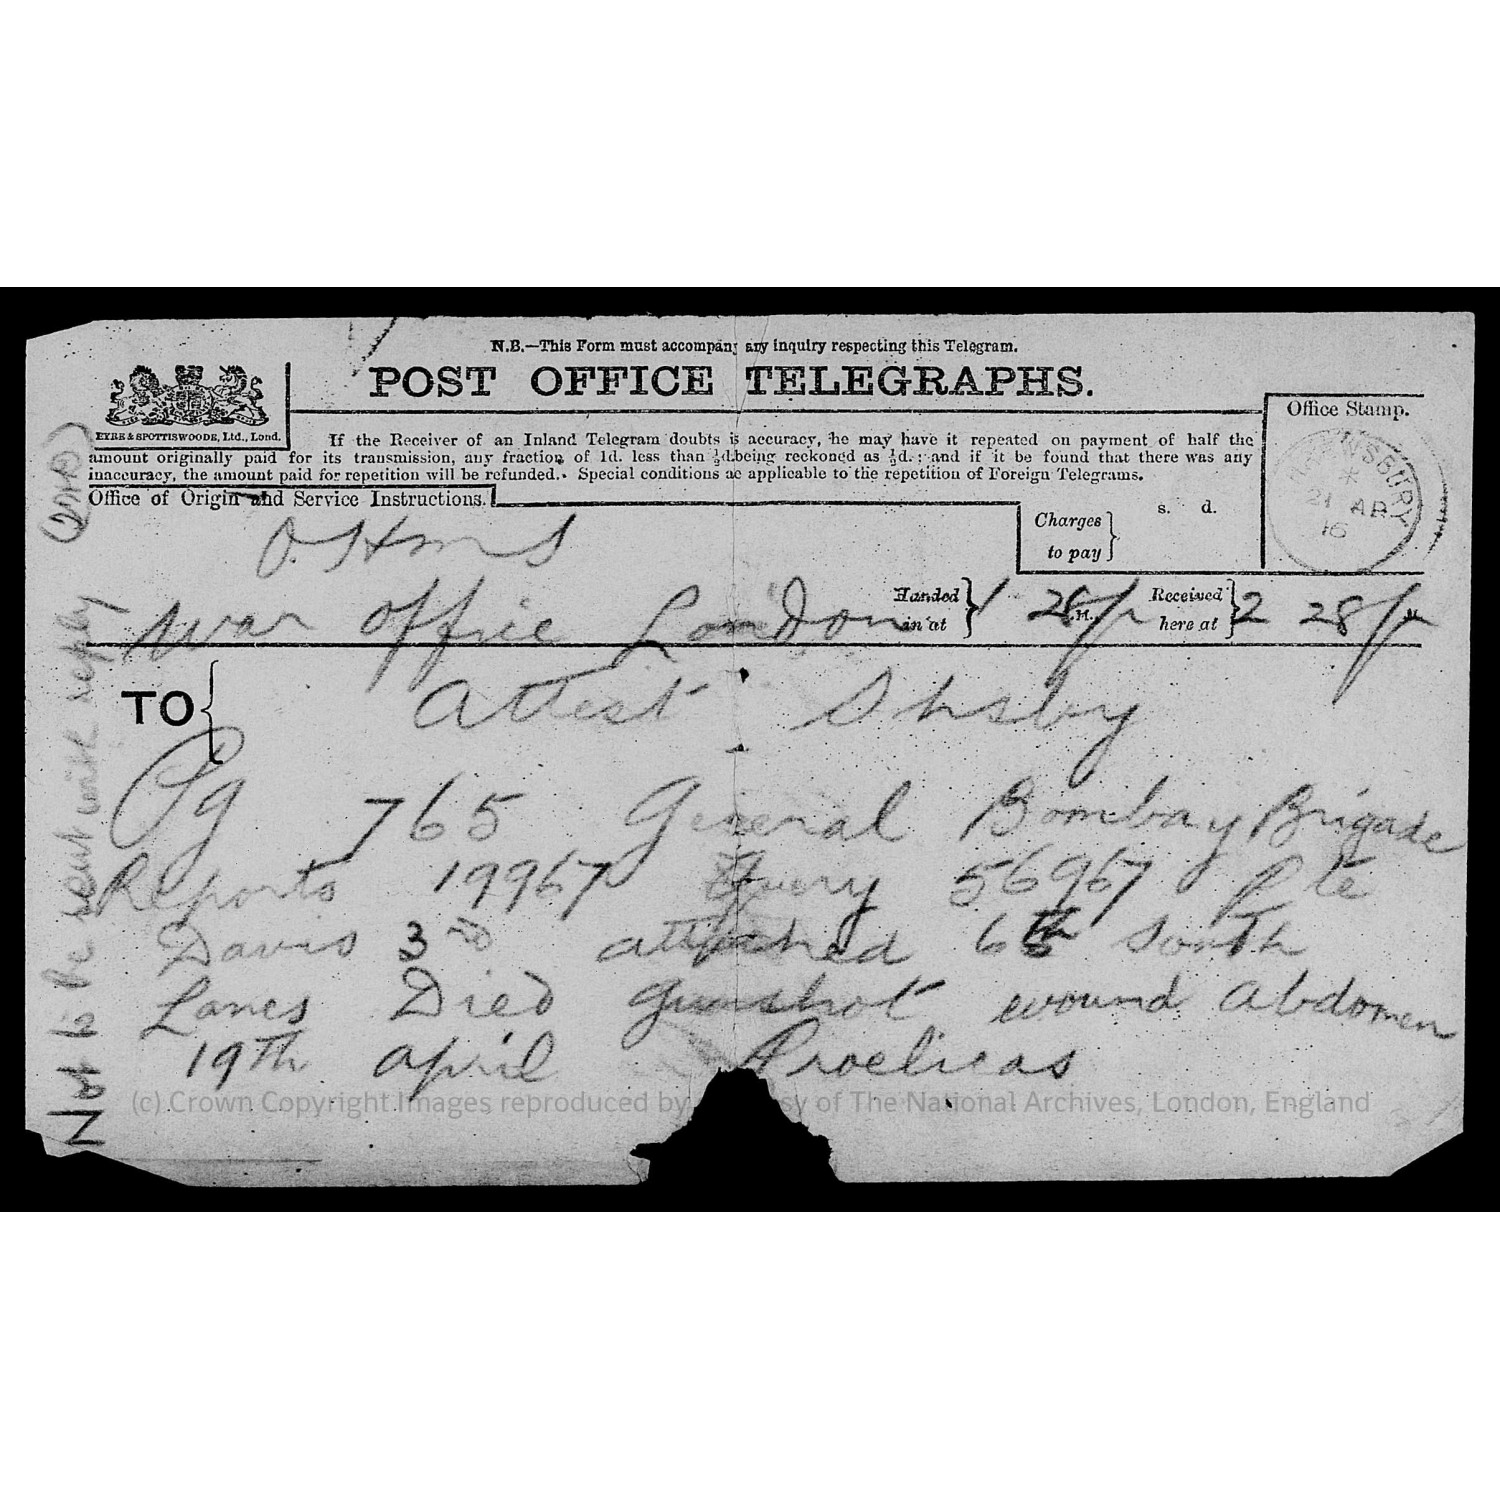 N.B.—This Form must accompany any inquiry respecting this Telegram.
POST OFFICE TELEGRAPHS.
EYRE & SPOTTISWOODE, Ltd., Lond.
If the Receiver of an Inland Telegram doubts is accuracy, he may have it repeated on payment of half the
amount originally paid for its transmission, any fraction of 1d. less than ½d. being reckoned as ½d. ; and if it be found that there was any
inaccuracy, the amount paid for repetition will be refunded. Special conditions ac applicable to the repetition of Foreign Telegrams.
Office of Origin and Service Instructions.
Office Stamp.
NSBURY
21 AP
16
s. d.
Charges
to pay
O.H.m S
War Office London
Handed
in at
1 28 p
M.
Received
here at
2 28 p
TO
Attest Shsby
Pg 765 General Bombay Brigade
Reports 19967 Query 56967 Pte
Davis 3rd attached 6th South
Lancs Died Gunshot wound Abdomen
19Th April
Not to be sent with reply
(c) Crown Copyright Images reproduced by courtesy of The National Archives, London, England